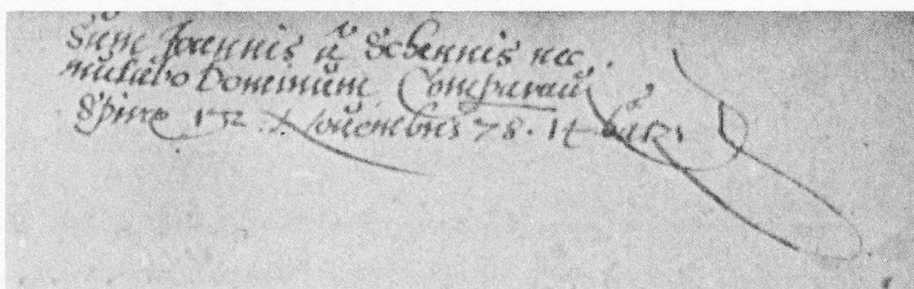 Sŭm Joannis Schennis nec
mutabo Dominŭm. Comparaui
Spiræ Nouembris 78. 14